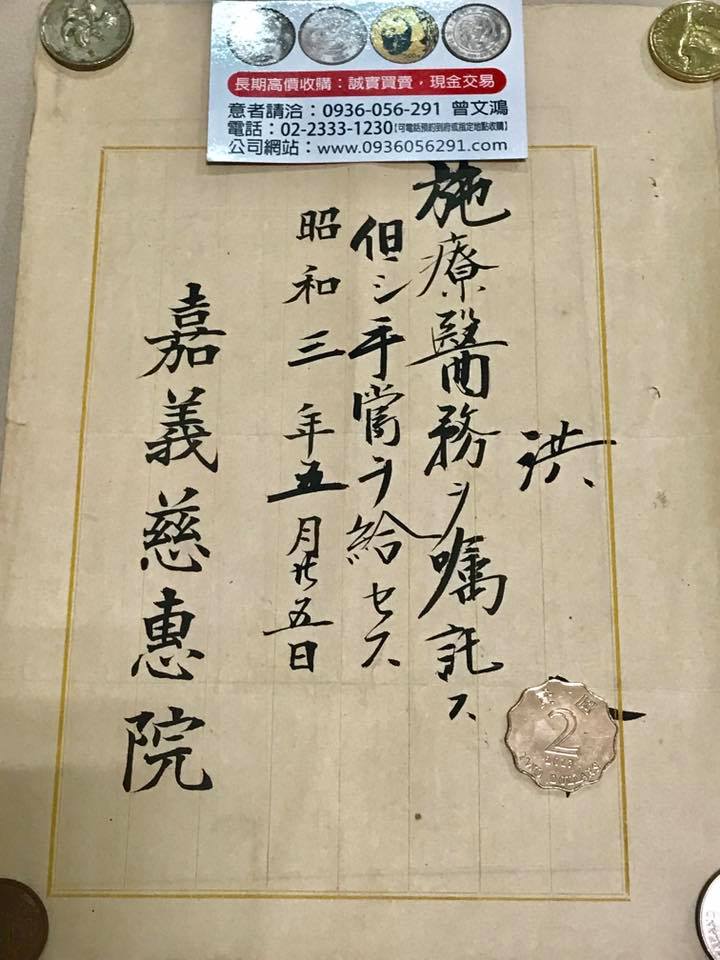 長期高價收購：誠實買賣，現金交易
意者請洽：0936-056-291 曾文鴻
電話：02-2333-1230【可電話預約到府或指定地點收購】
公司網站：www.0936056291.com
洪
施療醫務ヲ嘱託ス
但シ手當ヲ給セス
昭和三年五月廿五日
嘉義慈惠院
2
2013
TWO DOLLARS